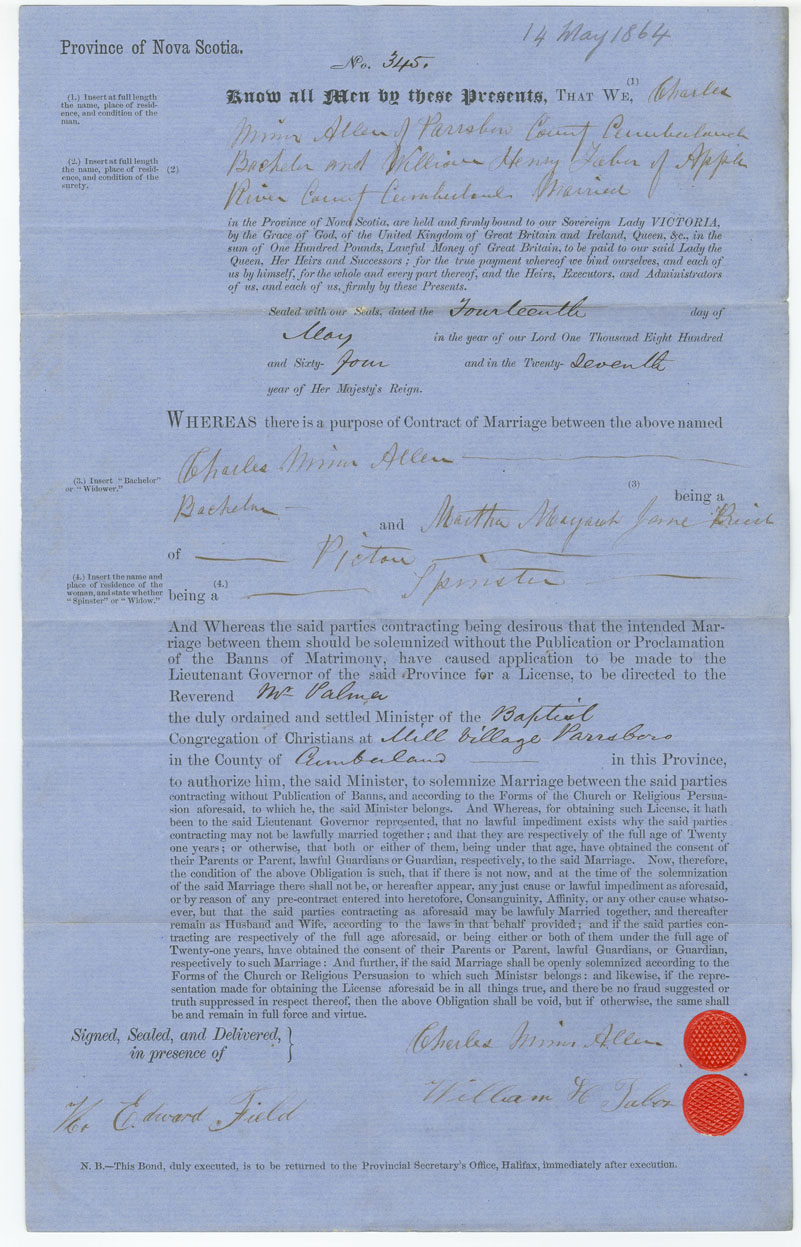 14 May 1864
Province of Nova Scotia.
No. 345.
(1.) Insert at full length
the name, place of resid-
ence, and condition of the
man.
Know all Men by these Presents, THAT WE, (1) Charles
Minor Allen of Parrsboro County Cumberland
(2.) Insert at full length
the name, place of resid-
ence, and condition of the
surety.
(2) Bachelor and William Henry Taber of Apple
River County Cumberland Married
in the Province of Nova Scotia, are held and firmly bound to our Sovereign Lady VICTORIA,
by the Grace of God, of the United Kingdom of Great Britain and Ireland, Queen, &c., in the
sum of One Hundred Pounds, Lawful Money of Great Britain, to be paid to our said Lady the
Queen, Her Heirs and Successors; for the true payment whereof we bind ourselves, and each of
us by himself, for the whole and every part thereof, and the Heirs, Executors, and Administrators
of us, and each of us, firmly by these Presents.
Sealed with our Seals, dated the Fourteenth day of
May in the year of our Lord One Thousand Eight Hundred
and Sixty- four and in the Twenty- Seventh
year of Her Majesty's Reign.
WHEREAS there is a purpose of Contract of Marriage between the above named
Charles Minor Allen
(3.) Insert "Bachelor"
or "Widower."
(3) being a
Bachelor and Martha Jane
of Pictou
(4.) Insert the name and
place of residence of the
woman, and state whether
"Spinster" or "Widow."
being a (4.) Spinster
And Whereas the said parties contracting being desirous that the intended Mar-
riage between them should be solemnized without the Publication or Proclamation
of the Banns of Matrimony, have caused application to be made to the
Lieutenant Governor of the said Province for a License, to be directed to the
Reverend Mr Palmer
the duly ordained and settled Minister of the Baptist
Congregation of Christians at Mill Village Parrsboro
in the County of Cumberland in this Province,
to authorize him, the said Minister, to solemnize Marriage between the said parties
contracting without Publication of Banns, and according to the Forms of the Church or Religious Persua-
sion aforesaid, to which he, the said Minister belongs. And Whereas, for obtaining such License, it hath
been to the said Lieutenant Governor represented, that no lawful impediment exists why the said parties
contracting may not be lawfully married together; and that they are respectively of the full age of Twenty
one years; or otherwise, that both or either of them, being under that age, have obtained the consent of
their Parents or Parent, lawful Guardians or Guardian, respectively, to the said Marriage. Now, therefore,
the condition of the above Obligation is such, that if there is not now, and at the time of the solemnization
of the said Marriage there shall not be, or hereafter appear, any just cause or lawful impediment as aforesaid,
or by reason of any pre-contract entered into heretofore, Consanguinity, Affinity, or any other cause whatso-
ever, but that the said parties contracting as aforesaid may be lawfuly Married together, and thereafter
remain as Husband and Wife, according to the laws in that behalf provided; and if the said parties con-
tracting are respectively of the full age aforesaid, or being either or both of them under the full age of
Twenty-one years, have obtained the consent of their Parents or Parent, lawful Guardians, or Guardian,
respectively to such Marriage: And further, if the said Marriage shall be openly solemnized according to the
Forms of the Church or Religious Persuasion to which such Ministsr belongs: and likewise, if the repre-
sentation made for obtaining the License aforesaid be in all things true, and there be no fraud suggested or
truth suppressed in respect thereof, then the above Obligation shall be void, but if otherwise, the same shall
be and remain in full force and virtue.
Signed, Sealed, and Delivered,
in presence of
Charles Minor Allen
William H Tabor
Edward Field
N. B.—This Bond, duly executed, is to be returned to the Provincial Secretary's Office, Halifax, immediately after execution.